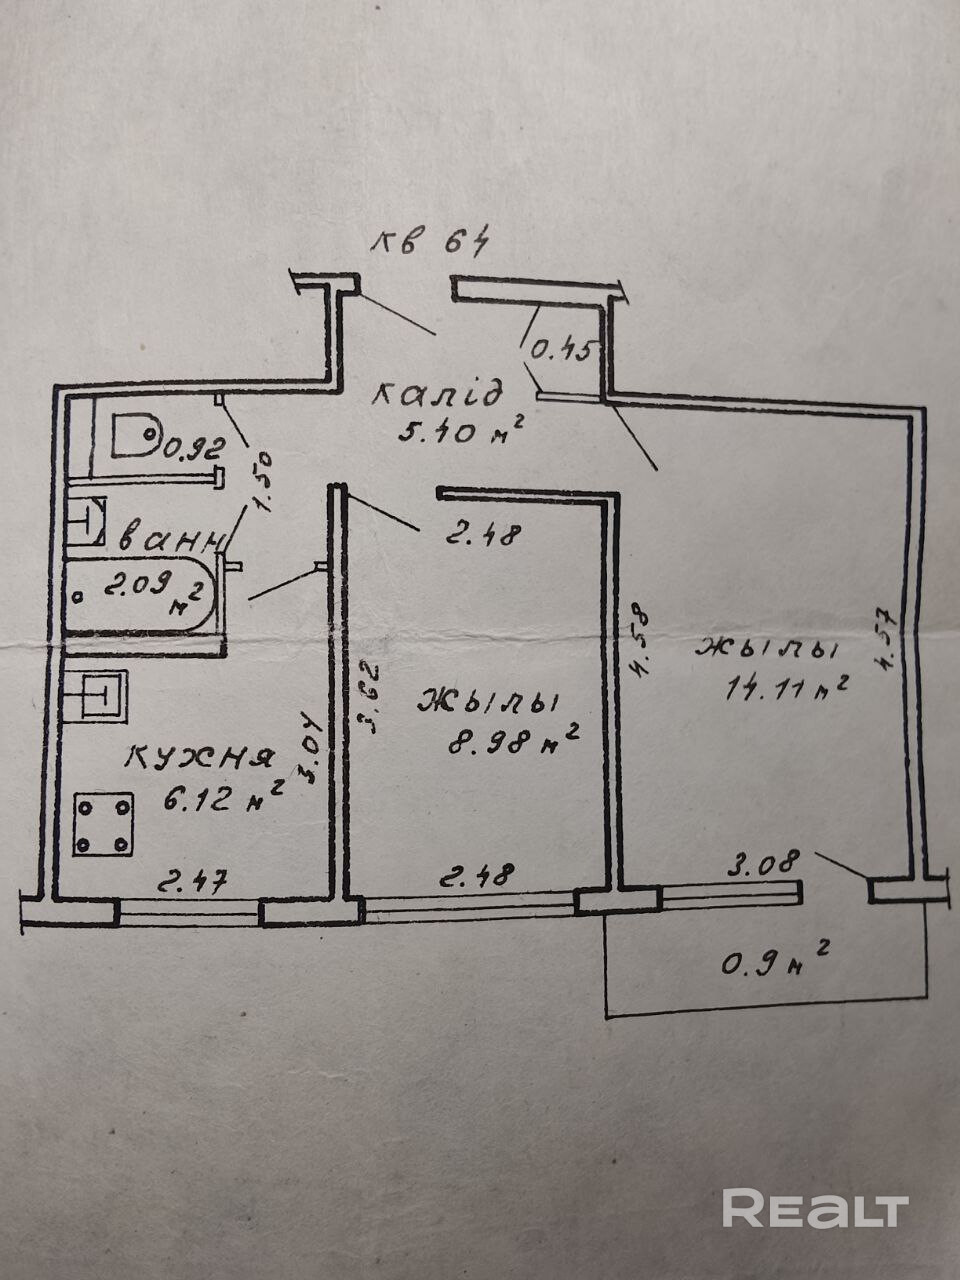 кв 64
0.45
калід
5.40 м²
0.92
1.50
ванн
2.09 м²
2.48
4.58
4.57
жылы
14.11 м²
3.62
жылы
8.98 м²
3.04
кухня
6.12 м²
2.47
2.48
3.08
0.9 м²
REALT